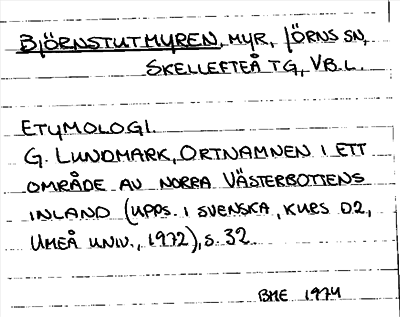 BJÖRNSTUTMYREN, MYR, JÖRNS SN,
SKELLEFTEÅ TG, VB.L.
ETYMOLOGI.
G. LUNDMARK, ORTNAMNEN I ETT
OMRÅDE AV NORRA VÄSTERBOTTENS
INLAND (UPPS. I SVENSKA, KURS D2,
UMEÅ UNIV., 1972), S. 32.
BHE 1974